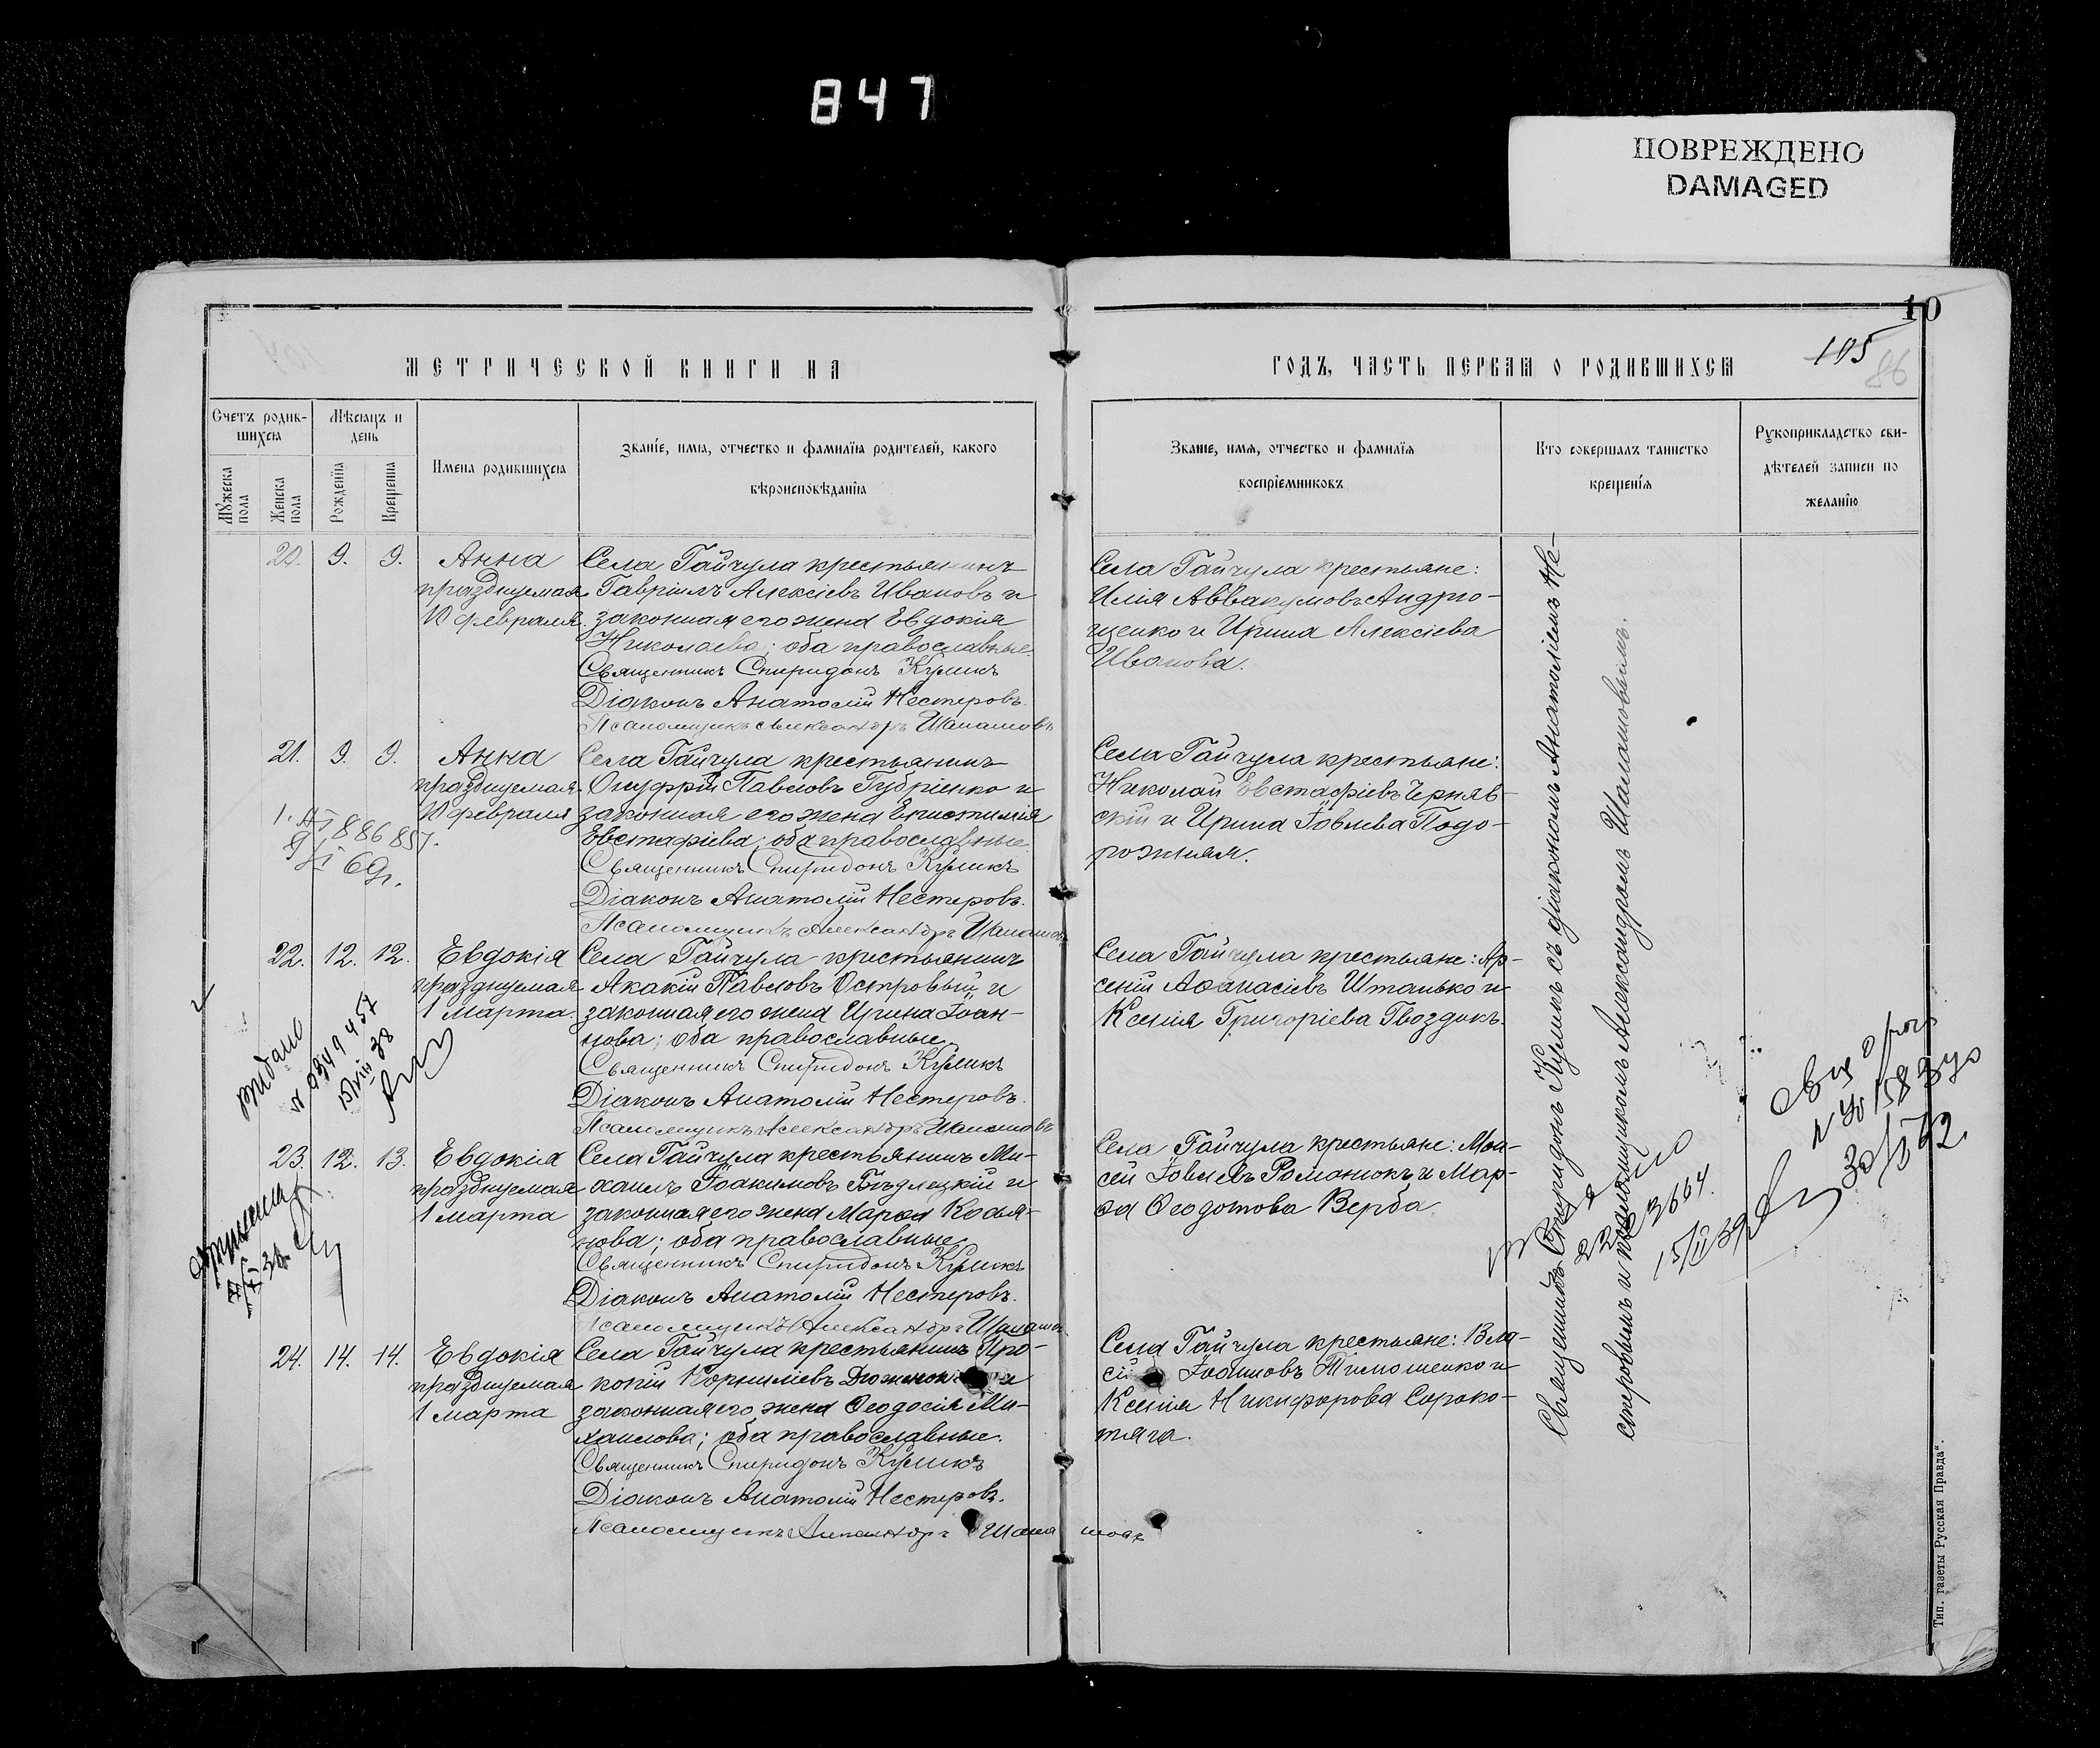 847
ПОВРЕЖДЕНО
DAMAGED
10
105
86
МЕТРИЧЕСКОЙ КНИГИ НА
ГОДЪ, ЧАСТЬ ПЕРВАЯ О РОДИВШИХСЯ
Счетъ родив-
шихся
Мѣсяцъ и
день
Мужеска
пола
Женска
пола
Рожденія
Крещенія
Имена родившихся
Званіе, имя, отчество и фамилія родителей, какого
вѣроисповѣданія
Званіе, имя, отчество и фамилія
воспріемниковъ
Кто совершалъ таинство
крещенія
Рукоприкладство сви-
дѣтелей записи по
желанію
20. 9. 9.
Анна
празднуемая
10 февраля.
Села Гайчула крестьянинъ
Гавріилъ Алексіевъ Ивановъ и
законная его жена Евдокія
Николаева; оба православные.
Священникъ Спиридонъ Куликъ
Діаконъ Анатолій Нестеровъ.
Псаломщикъ Александръ Шаламовъ
Села Гайчула крестьяне:
Илія Аввакумовъ Андрю-
щенко и Ирина Алексіева
Иванова.
21. 9. 9.
Анна
празднуемая
10 февраля
Села Гайчула крестьянинъ
Онуфрій Павловъ Губріенко и
законная его жена Епистимія
Евстафіева; оба православные.
Священникъ Спиридонъ Куликъ
Діаконъ Анатолій Нестеровъ.
Псаломщикъ Александръ Шаламовъ
Села Гайчула крестьяне:
Николай Евстафіевъ Черняв-
скій и Ирина Іовлева Подо-
рожняя.
69г.
22. 12. 12.
Евдокія
празднуемая
1 марта.
Села Гайчула крестьянинъ
Акакій Павловъ Островый и
законная его жена Ирина Іоан-
нова; оба православные.
Священникъ Спиридонъ Куликъ
Діаконъ Анатолій Нестеровъ.
Псаломщикъ Александръ Шаламовъ
Села Гайчула крестьяне: Ар-
сеній Аѳанасіевъ Штанько и
Ксенія Григоріева Гвоздокъ.
видано
N 0349457
15/VIII 38
23. 12. 13.
Евдокія
празднуемая
1 марта
Села Гайчула крестьянинъ Ми-
хаилъ Іоакимовъ Бѣдлецкій и
законная его жена Марѳа Косьи-
нова; оба православные.
Священникъ Спиридонъ Куликъ
Діаконъ Анатолій Нестеровъ.
Псаломщикъ Александръ Шаламовъ
Села Гайчула крестьяне: Мои-
сей Іовлевъ Романюкъ и Мар-
ѳа Ѳеодотова Верба
24. 14. 14.
Евдокія
празднуемая
1 марта
Села Гайчула крестьянинъ Про-
копій Корниліевъ и
законная его жена Ѳеодосія Ми-
хаилова; оба православные.
Священникъ Спиридонъ Куликъ
Діаконъ Анатолій Нестеровъ.
Псаломщикъ Александръ Шаламовъ
Села Гайчула крестьяне: Вла-
сій Тимошенко и
Ксенія Никифорова Сороко-
тяга.
Священникъ Спиридонъ Куликъ съ діакономъ Анатоліемъ Не-
стеровымъ и псаломщикомъ Александромъ Шаламовымъ.
3664.
15/II 39
Тип. газеты „Русская Правда“.